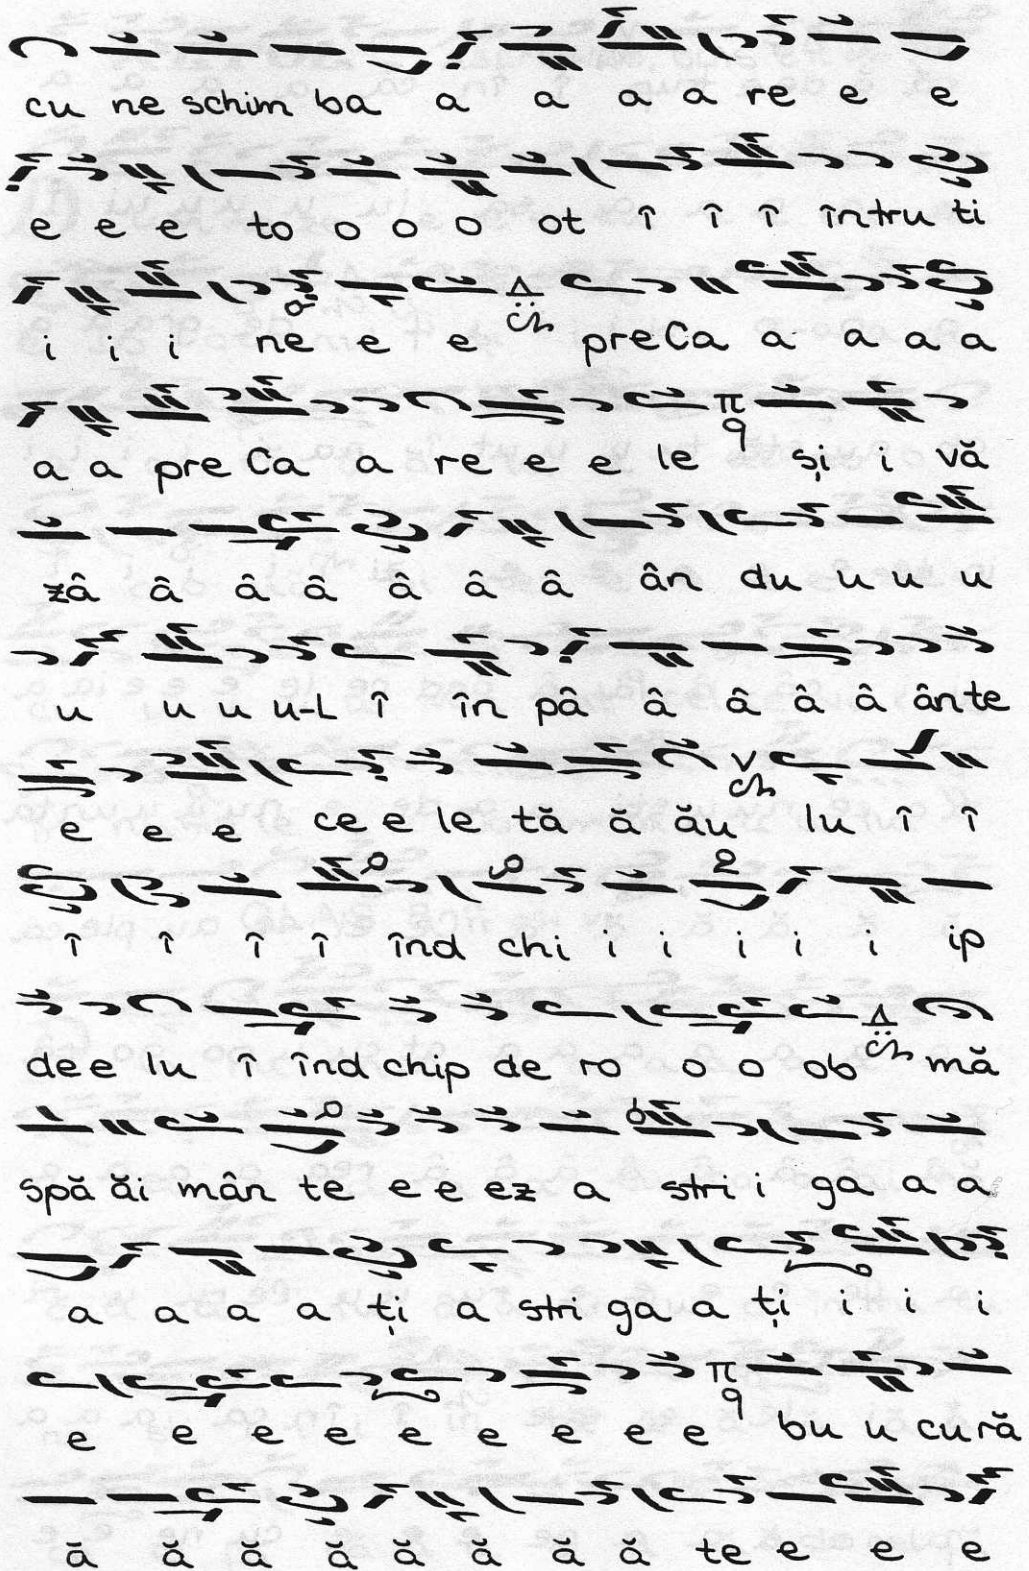 cu ne schim ba a a a a re e e
e e e to o o o ot î î î întru ti
i i i ne e e preCa a a a a
a a pre Ca a re e e le și i vă
zâ â â â â â â ân du u u u
u u u u-L î în pâ â â â â ân te
e e e ce e le tă ă ău lu î î
î î î î înd chi i i i i i ip
de e lu î înd chip de ro o o ob mă
spă ăi mân te e e ez a stri i ga a a
a a a a ți a stri ga a ți i i i
e e e e e e e e e bu u cu ră
ă ă ă ă ă ă ă ă te e e e